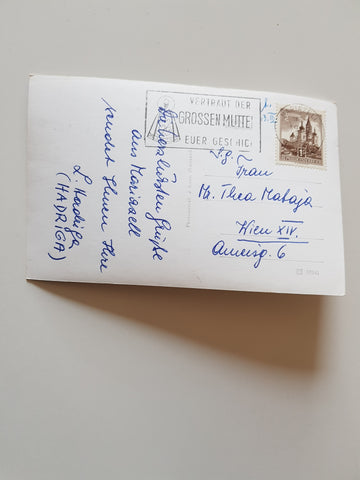 VERTRAUT DER
GROSSEN MUTTE
EUER GESCHIC
Die herzlichsten Grüße
aus Mariazell
sendet Ihnen Ihre
L. Hadriga
(HADRIGA)
Frau
Thea Matsaja
Wien XIV.
Ameisg. 6